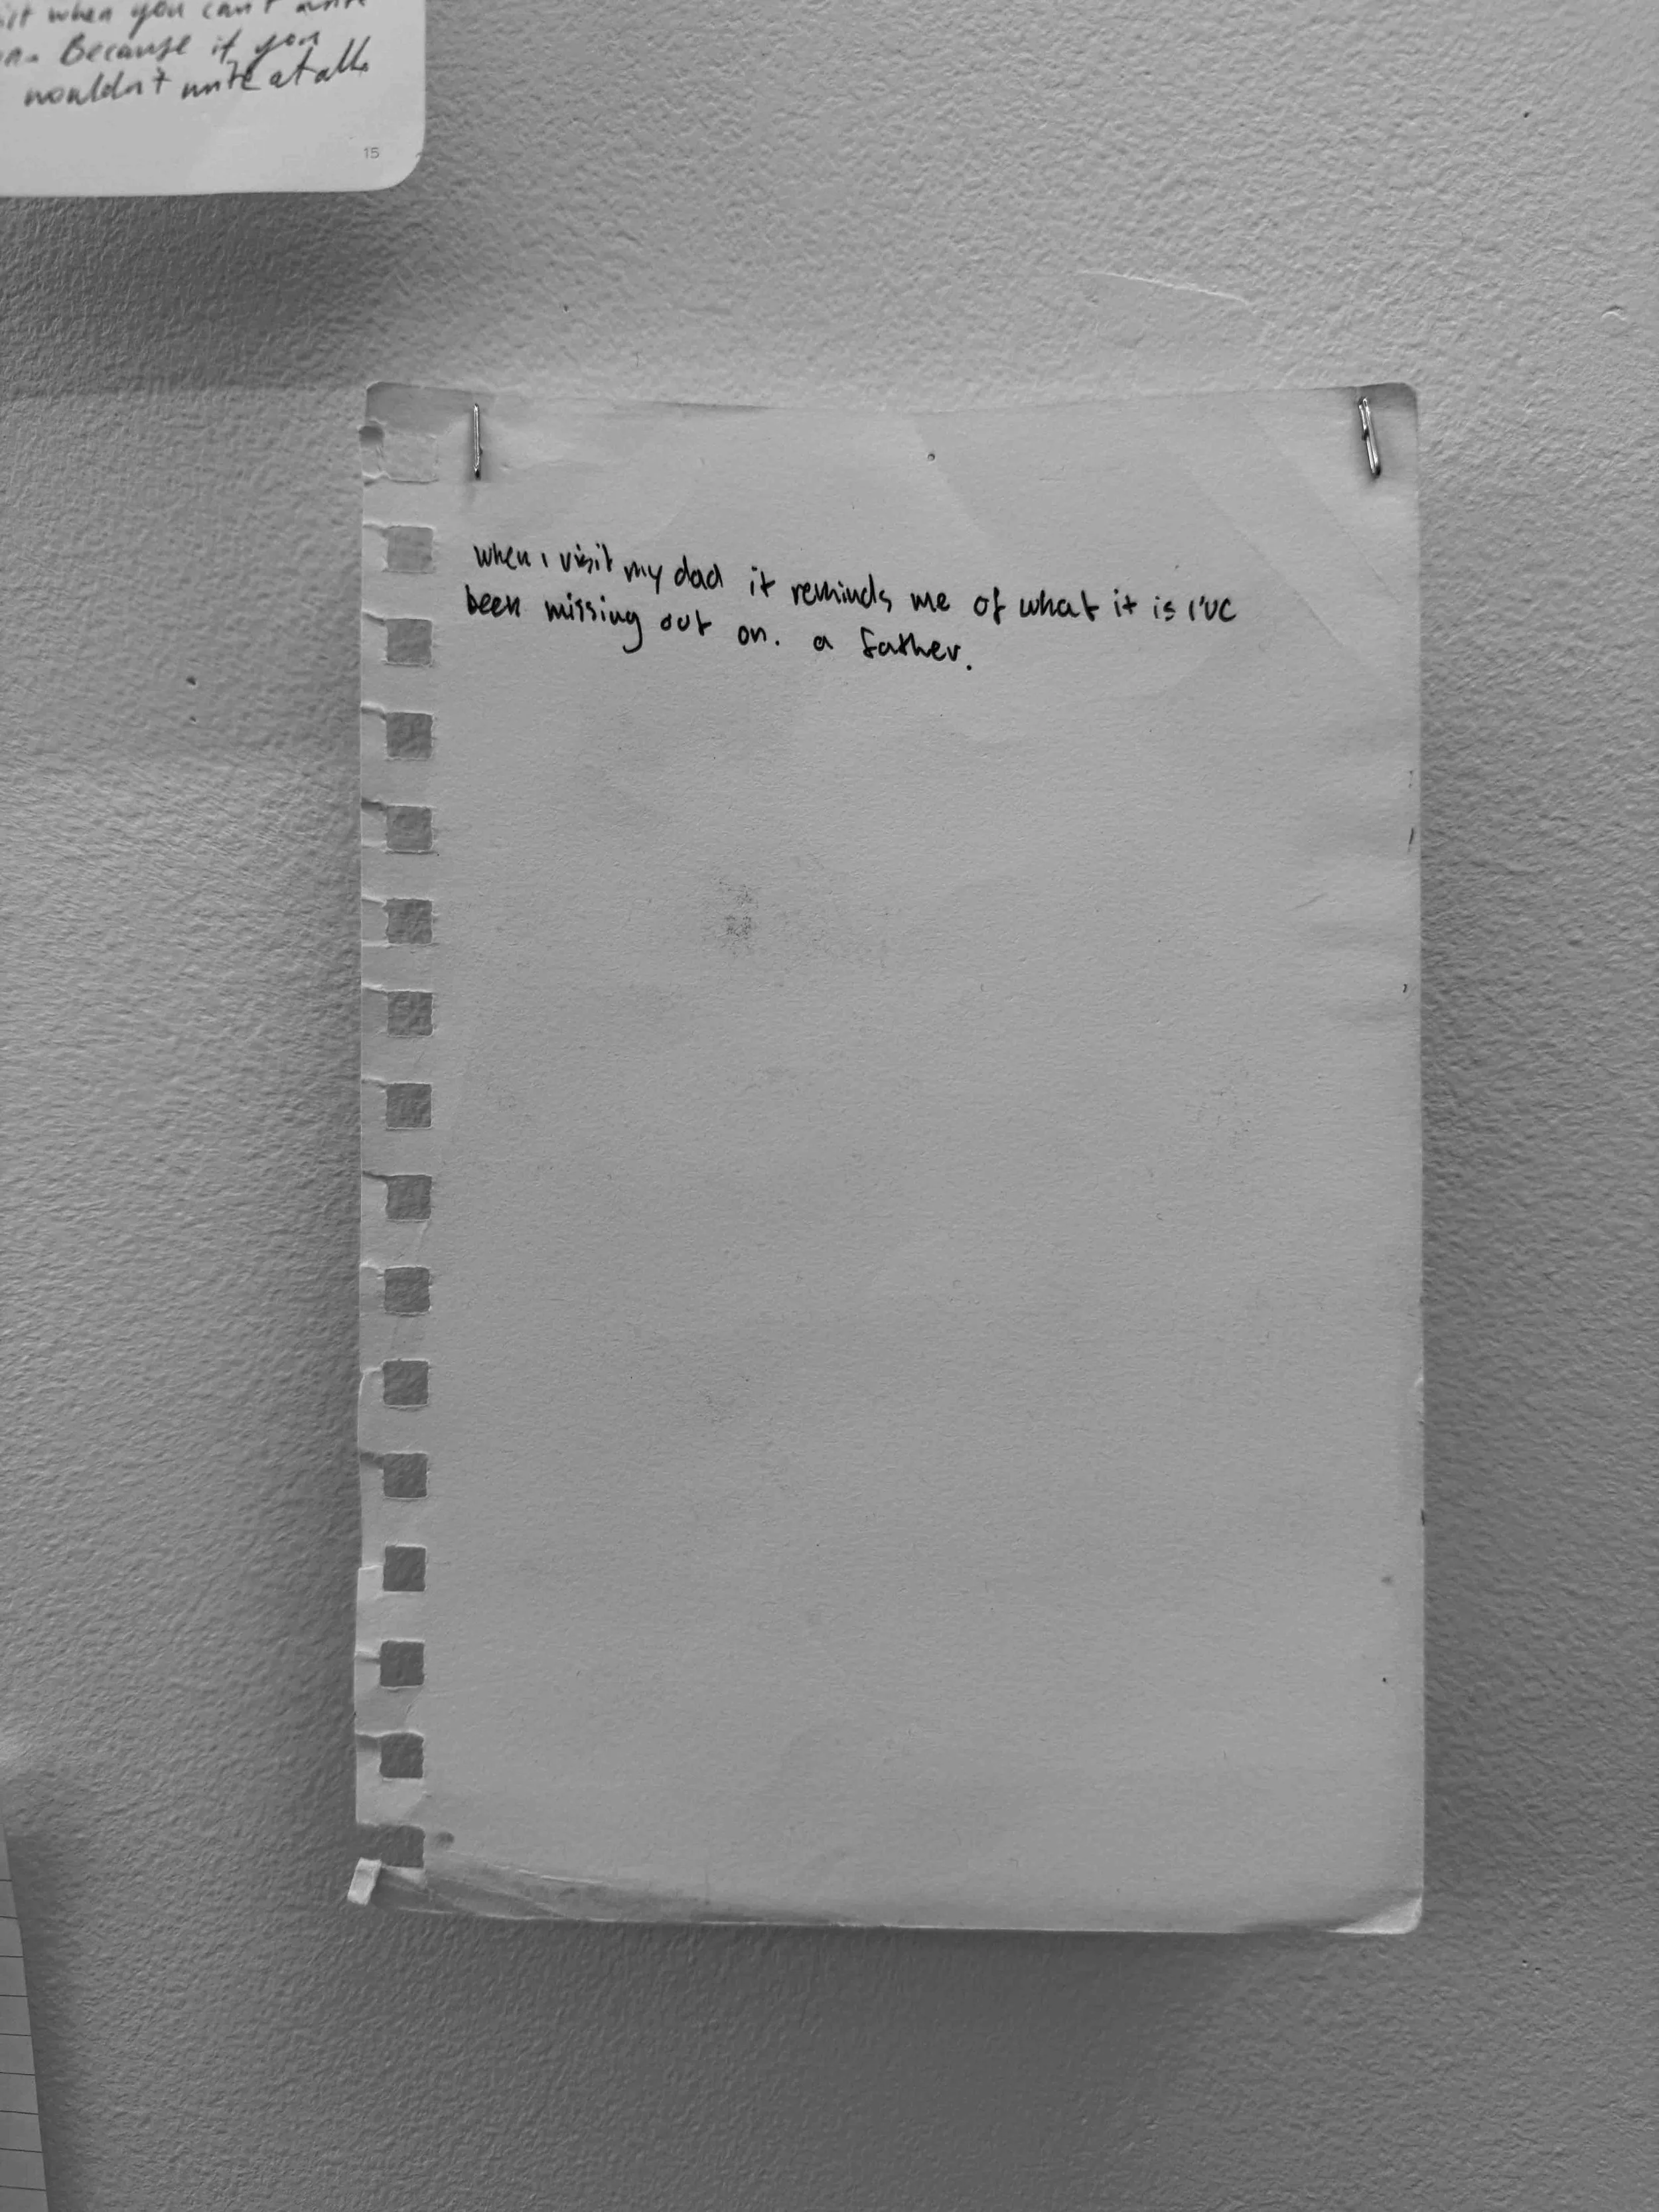 when you can't
Because if you
wouldn't write at all.
15
when i visit my dad it reminds me of what it is i've
been missing out on. a father.